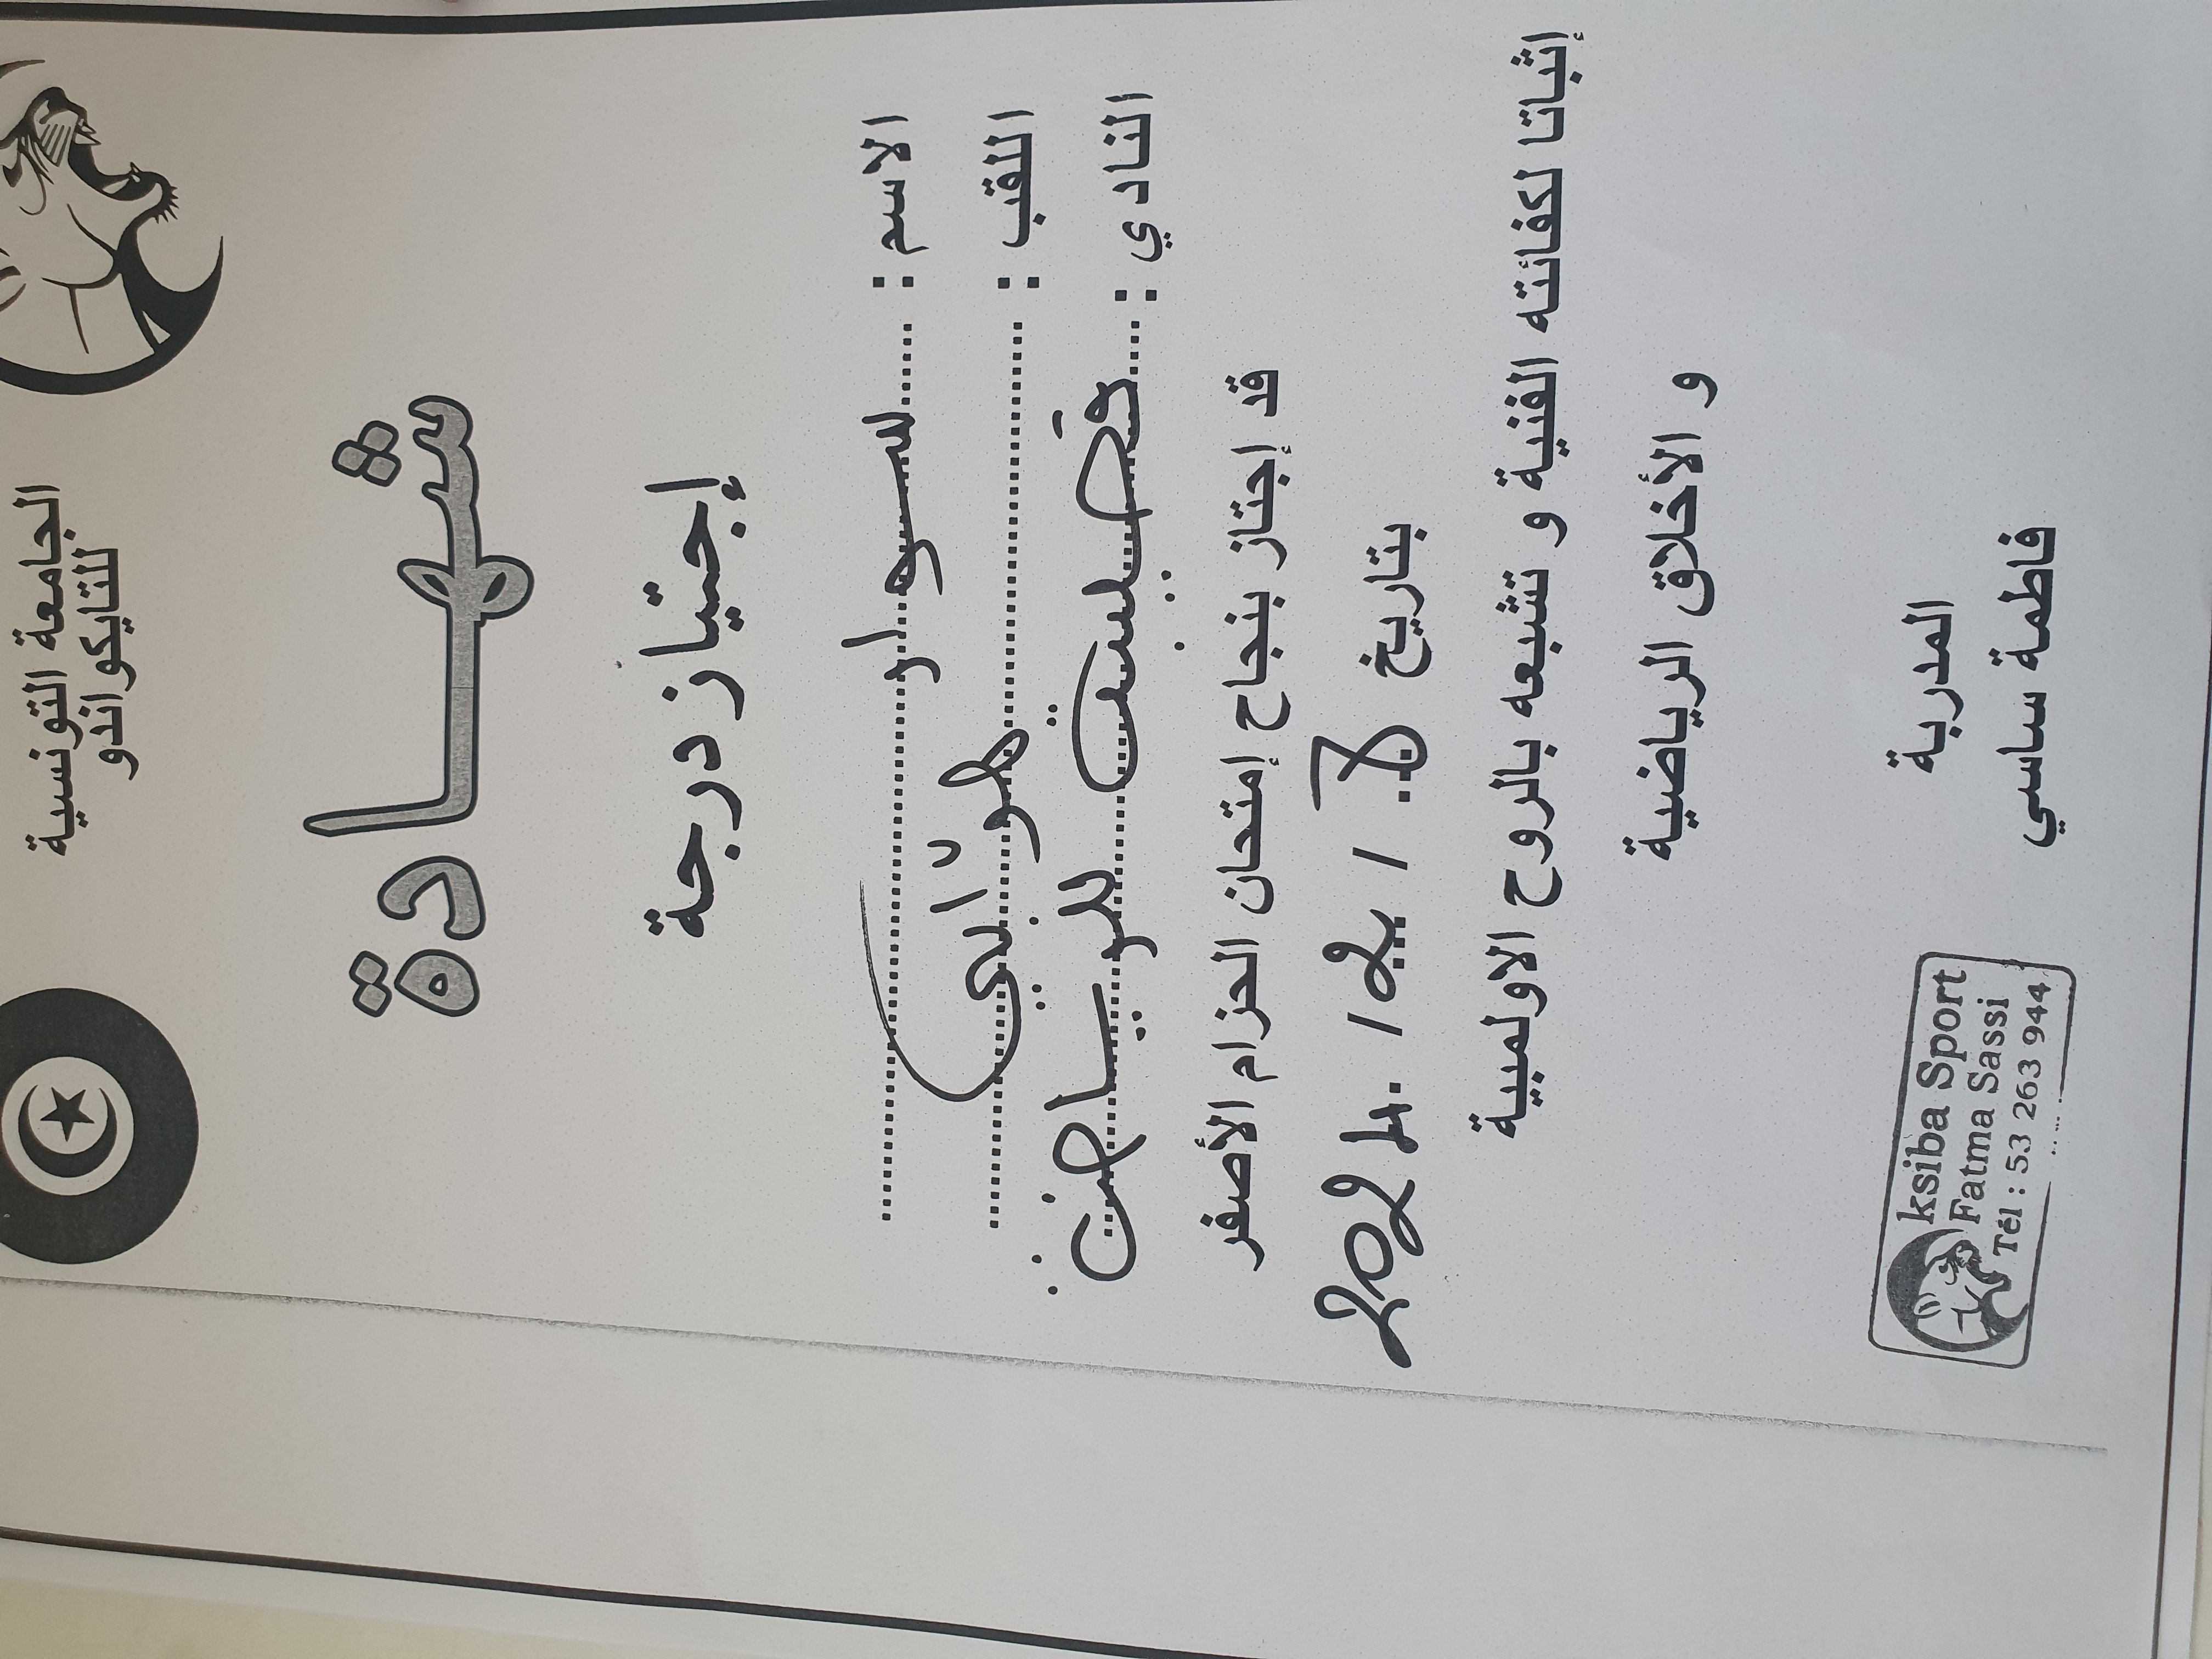 الجامعة التونسية
للتايكواندو
شهادة
إجتياز درجة
الاسم : سوار
اللقب :
النادي : قصيبة للرياضة
قد إجتاز بنجاح إمتحان الحزام الأصفر
بتاريخ 8 / 2 / 2024
إثباتا لكفائته الفنية و تشبعه بالروح الاولمبية
و الأخلاق الرياضية
المدربة
فاطمة ساسي
ksiba Sport
Fatma Sassi
Tél : 53 263 944